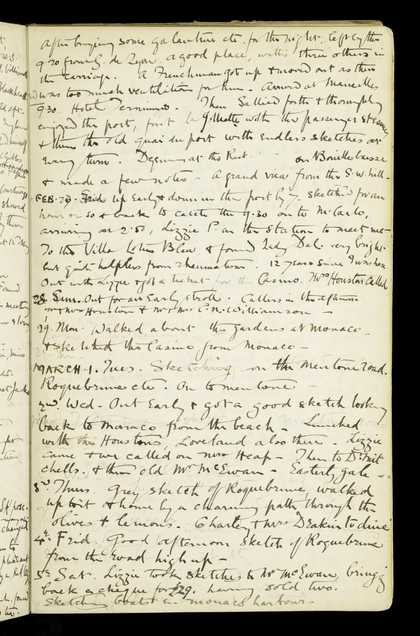 After buying some galantine etc. for the night. left by the
9.20 from G. de Lyon, a good place, with three others in
the carriage. A Frenchman got up & moved out as there
was too much ventilation for him. Arrived at Marseilles
9.30 Hotel Terminus. Then sallied forth & thoroughly
enjoyed the port, first la Joliette with the passenger steamers
& then the old quai in port with endless sketches at
every turn. Dejeuner at the Rest. on Bouillebaisse
& made a few notes. A grand view from the S.W. hill.
FEB. 27 Sund up Early & down in the port by 7. Sketched for an
hour or so & back to catch the 9.30 on to M. Carlo,
arriving at 2.51, Lizzie P. on the Station to meet me
To the Villa Lotus Bleu & found Lady Dal very bright
but quite helpless from rheumatism. 12 years since I was here
Out with Lizzie & got a ticket for the Casino. Mrs Houston Called
28 Sun. Out for an Early stroll. Callers in the afternoon
Mrs Houston & Mr & Mrs C.N. Williamson
29. Mon. Walked about the gardens at Monaco
& sketched the Casino from Monaco
MARCH 1. Tues. Sketching on the Mentone road.
Roquebrune etc. On to Mentone
2nd. Wed. Out Early & got a good sketch looking
back to Monaco from the beach. Lunched
with the Houstons, Loveland also there. Lizzie
came & we called on Mrs Heap. Then to D. Mit
chells. & then old Mr McEwan. Easterly gale
3rd Thurs Grey sketch of Roquebrune, walked
up to it & home by a charming path through the
olives & lemons. Charley & Mrs Deakin to dine
4th Frid. Good afternoon sketch of Roquebrune
from the road high up
5th Sat. Lizzie took sketches to Mr McEwan bringing
back a cheque for £29. having sold two.
Sketching boats in Monaco harbour.